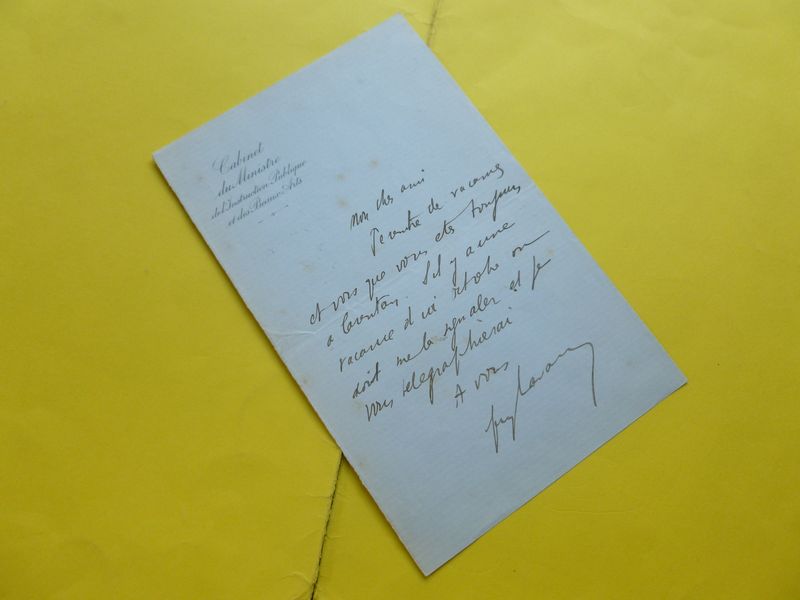 Cabinet
du Ministre
de l'Instruction Publique
et des Beaux-Arts
Mon cher ami
Je rentre de vacances
et vois que vous etes toujours
a S'il y a une
vacance d'ici octobre on
doit me la signaler et je
vous telegraphierai
A vous